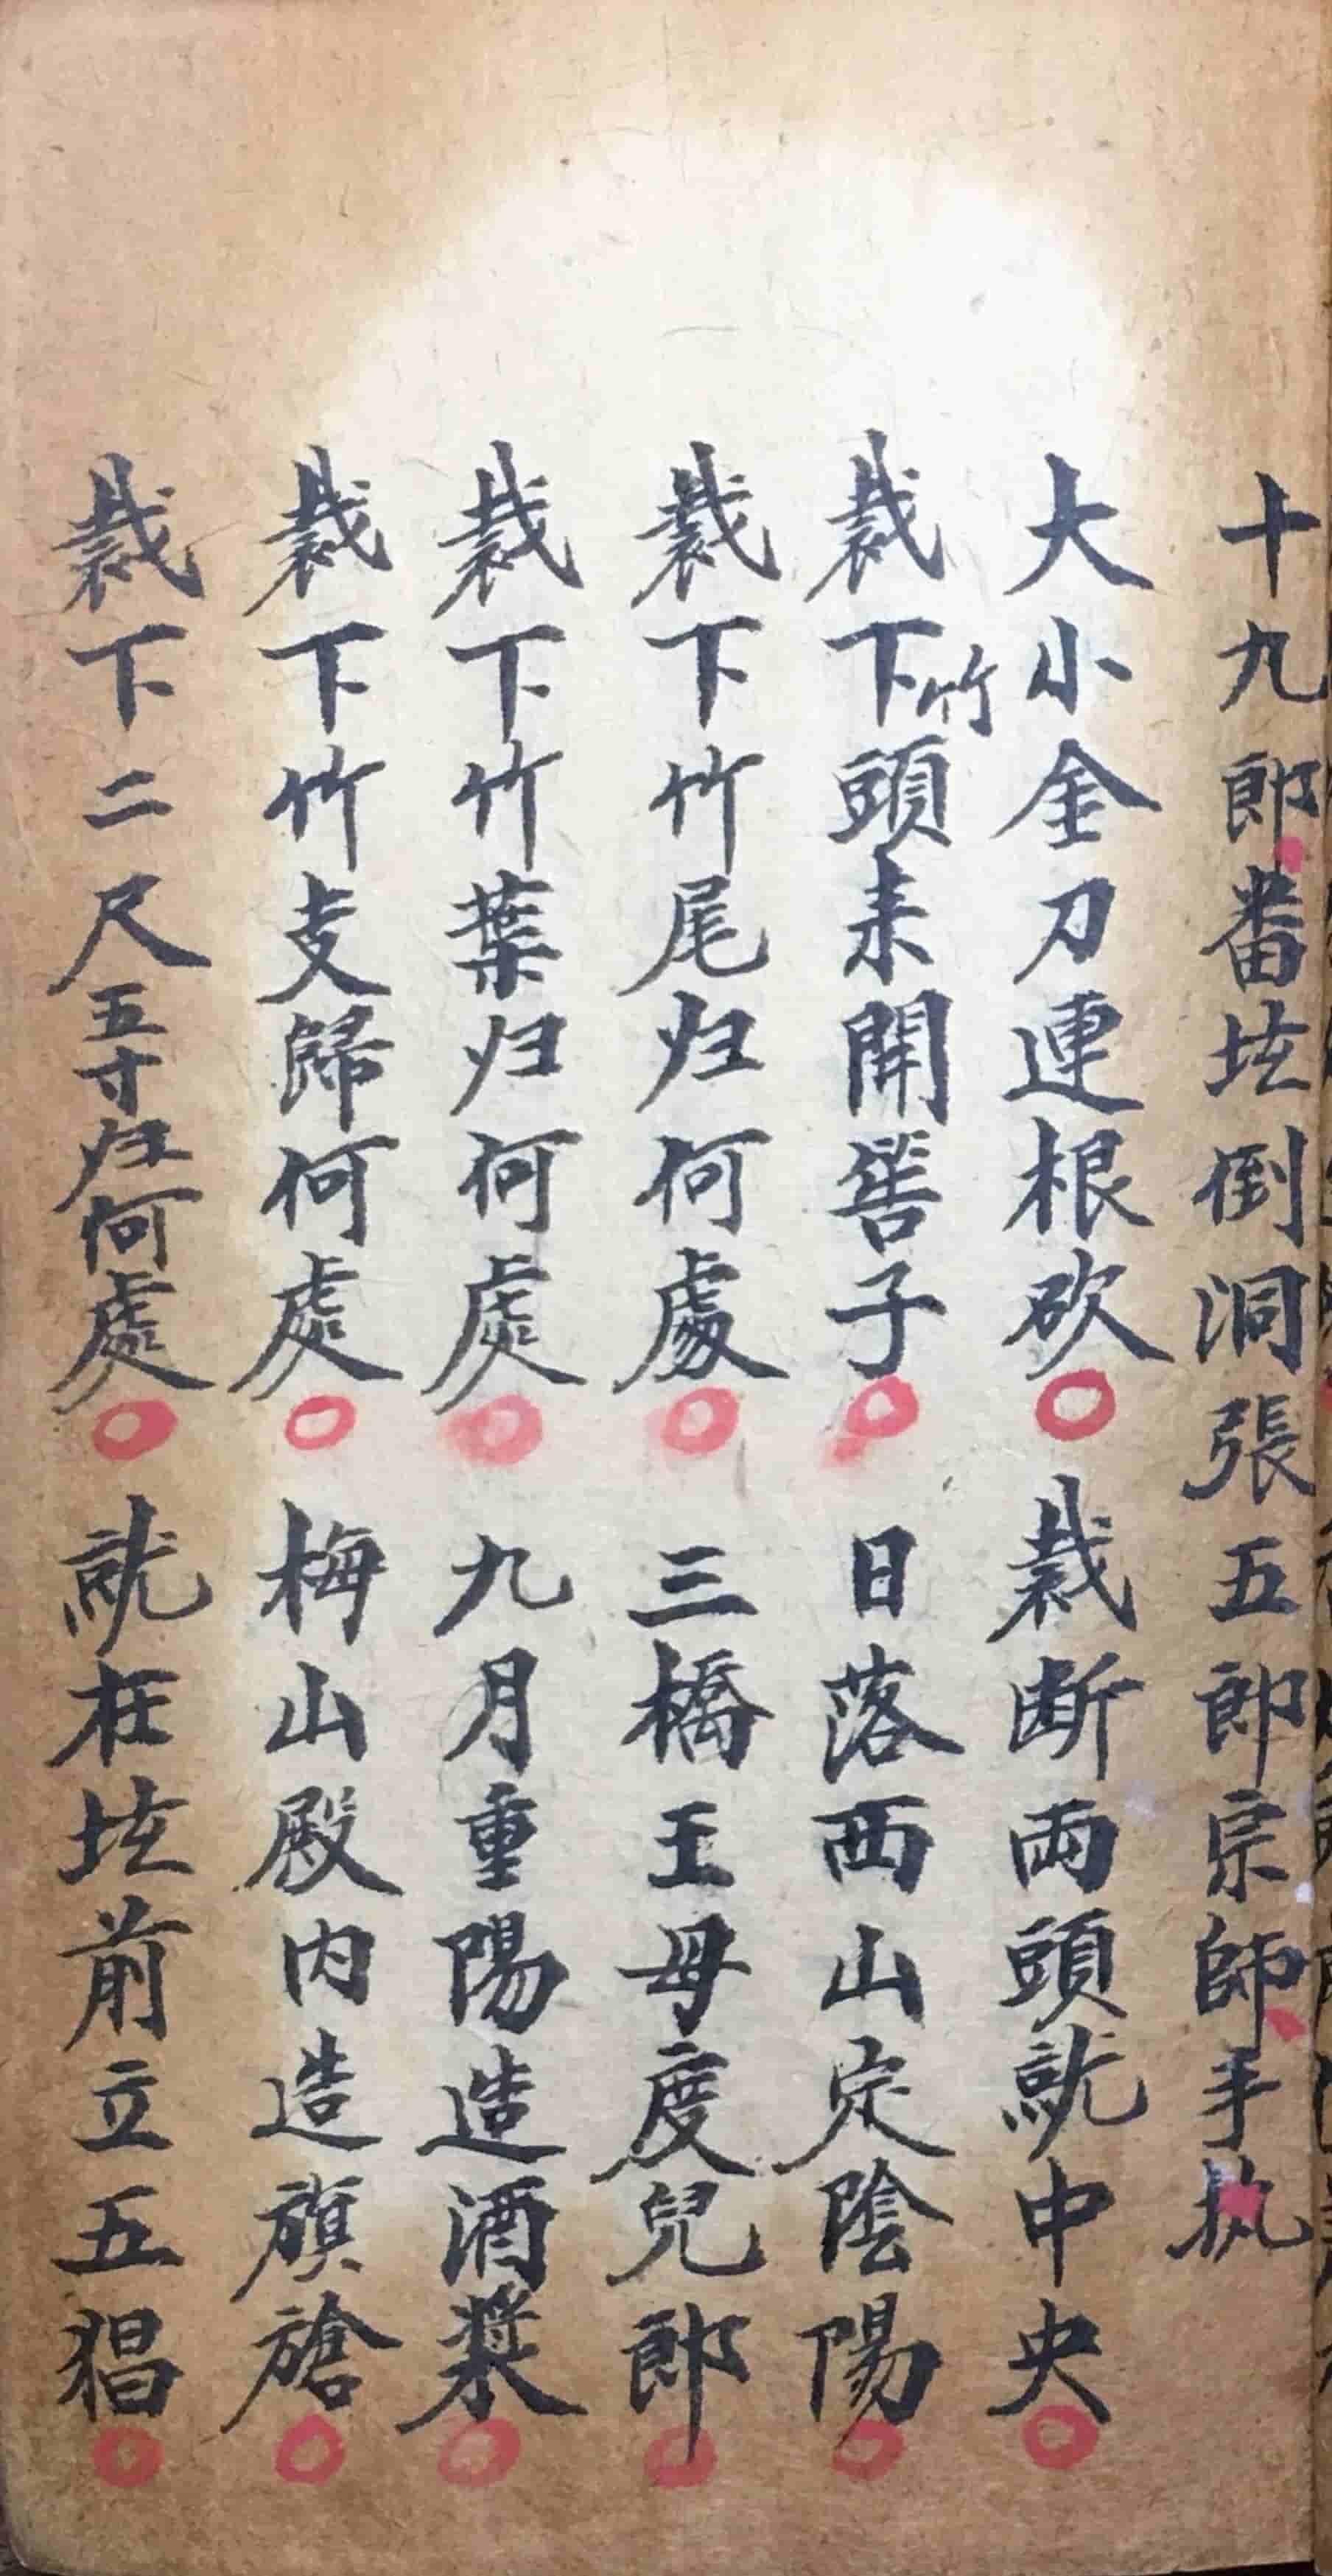 十九郎番坛倒洞張五郎宗師手执
大小金刀連根砍○裁断両頭就中央○
裁下竹頭来開筶子○日落西山定陰陽○
裁下竹尾归何處○三橋王母度兒郎○
裁下竹葉归何處○九月重陽造酒漿○
裁下竹支歸何處○梅山殿内造旗旝○
裁下二尺五寸归何處○就在坛前立五猖○